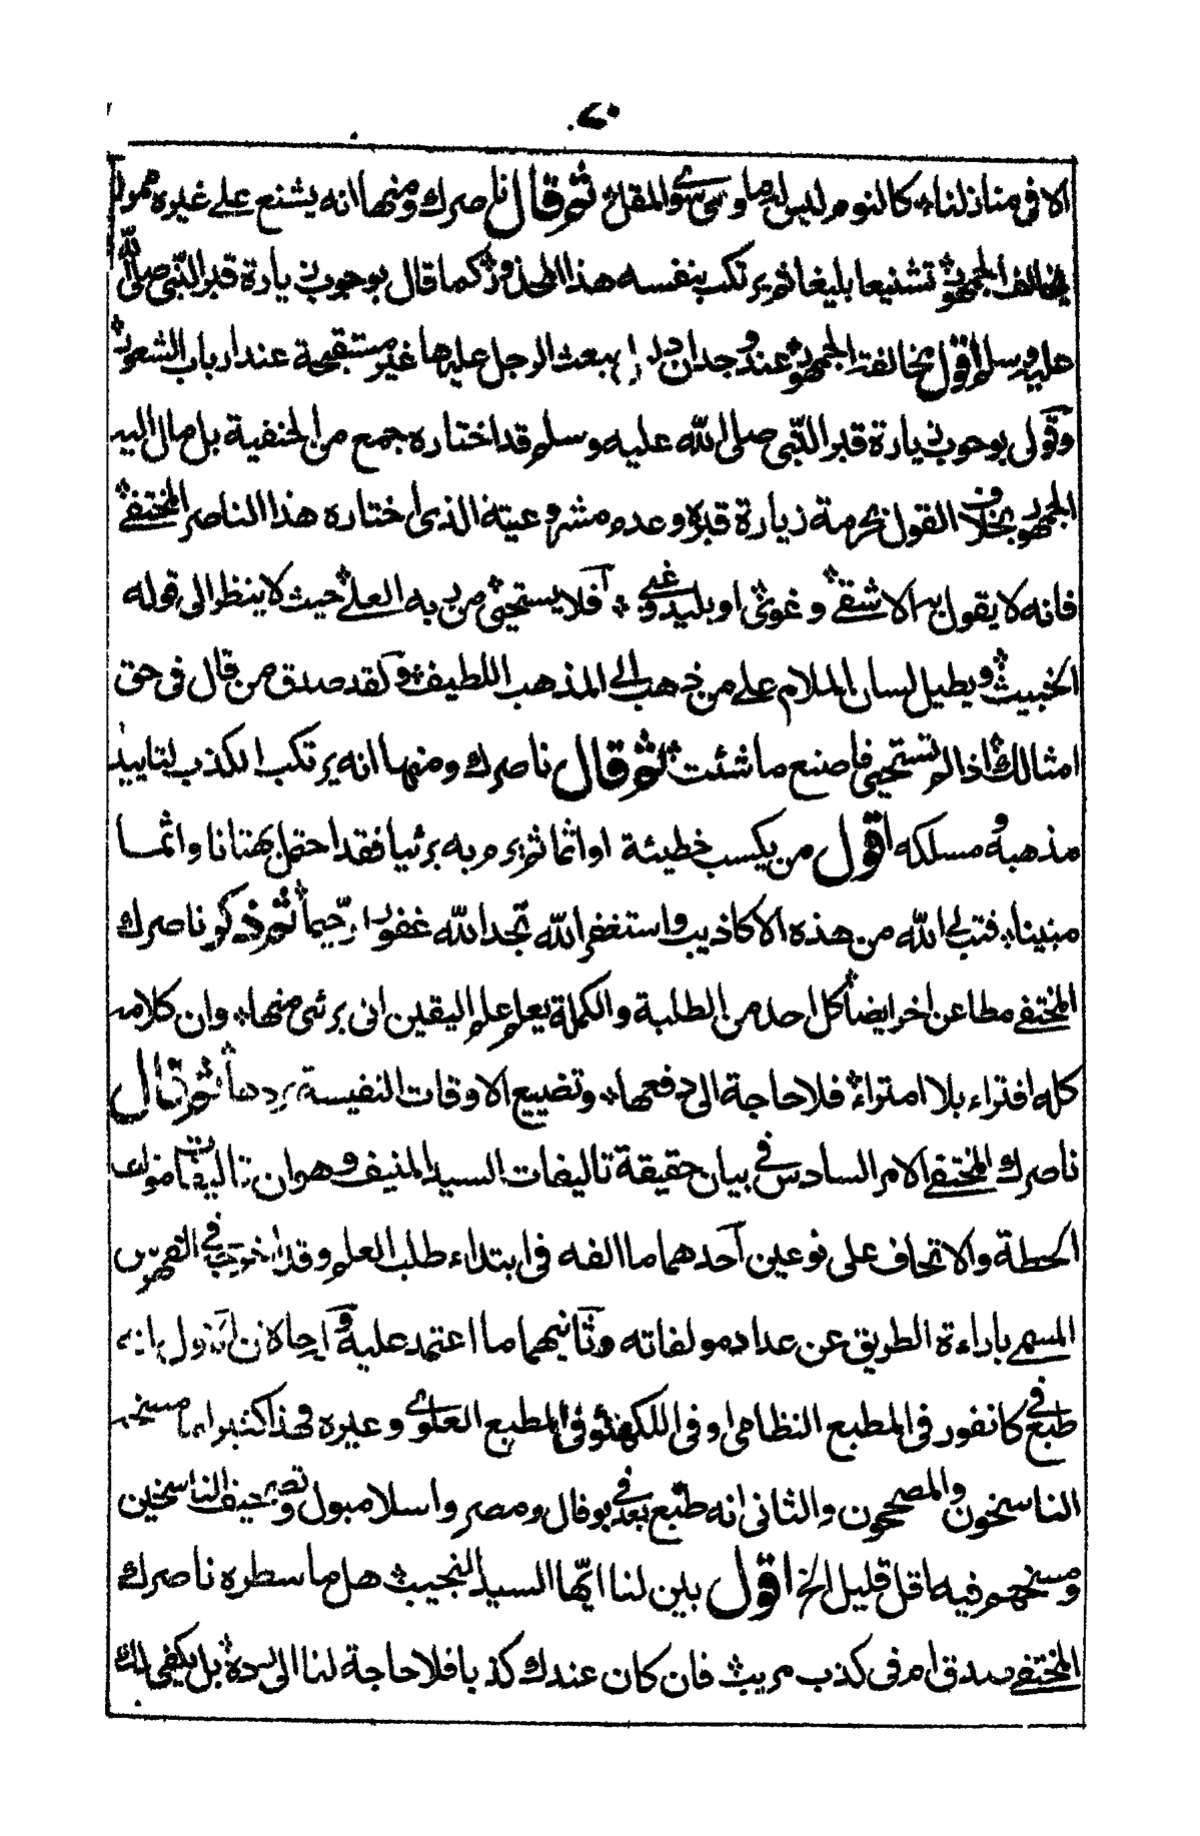 الا فى منازلنا٭ كالنوم ليس له ماوى سوى المقل٭ ثم قال ناصرك ومنها انه يشنع على غيره ممن
يخالف الجمهور٭ تشنيعا بليغا ثم يرتكب بنفسه هذا المحذور٭ كما قال بوجوب زيارة قبر النبى صلى الله
عليه وسلم اقول مخالفة الجمهور٭ عند وجدان يبعث الرجل عليها غير مستقبحة عند ارباب الشعور٭
وقولى بوجوب زيارة قبر النبى صلى الله عليه وسلم قد اختاره جمع من الحنفية بل مال اليه
الجمهور بخلاف القول بحرمة زيارة قبره وعدم مشروعيته الذى اختاره هذا الناصر المختفى٭
فانه لا يقول به الا شقى٭ وغوى٭ او بليد وغبى٭ أفلا يستحيى من ربه العلى٭ حيث لا ينظر الى قوله
الخبيث٭ ويطيل لسان الملام على من ذهب الى المذهب اللطيف٭ ولقد صدق من قال فى حق
امثالك٭ اذا لم تستحيى فاصنع ما شئت٭ ثم قال ناصرك ومنها انه يرتكب الكذب لتاييد
مذهبه ومسلكه اقول من يكسب خطيئة او اثما ثم يرم به برئيا فقد احتمل بهتانا واثما
مبينا٭ فتب الى الله من هذه الاكاذيب واستغفر الله تجد الله غفورا رحيما٭ ثم ذكر ناصرك
المختفى مطاعن اخر ايضا٭ كل احد من الطلبة والكملة يعلم علم اليقين انى برئى منها٭ وان كلامه
كله افتراء بلا امتراء٭ فلا حاجة الى دفعها٭ وتضييع الاوقات النفيسة بردها٭ ثم قال
ناصرك المختفى الامر السادس فى بيان حقيقة تاليفات السيد المنيف وهو ان تاليفات مؤلف
الحطة والاتحاف على نوعين أحدهما ما الفه فى ابتداء طلب العلم وقد اخرجه فى الفهرس
المسمى باراءة الطريق عن عداد مولفاته وثانيهما ما اعتمد عليه و
طبع فى كانفور فى المطبع النظامى او فى اللكهنئو فى المطبع العلوى وغيره فهذا كثيرا ما مسخه
الناسخون والمصححون والثانى انه طبع بعد فى بوفال ومصر واسلامبول وتصحيف الناسخين
ومسخهم فيه اقل قليل الخ اقول بين لنا ايها السيد النجيب٭ هل ما سطره ناصرك
المختفى صدق ام فى كذب مريب٭ فان كان عندك كذبا فلا حاجة لنا الى رده٭ بل يكفى لك